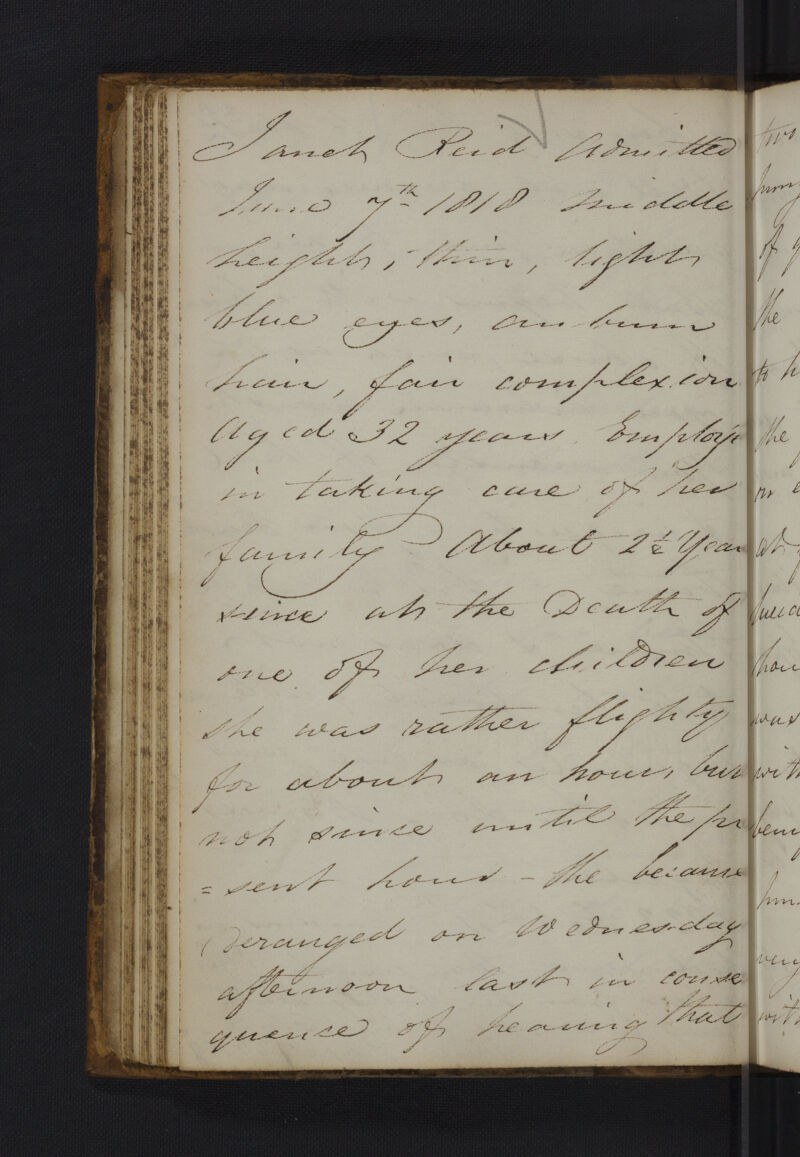 Janet Reid Admitted
June 7th 1818 middle
height, thin, light
blue eyes, auburn
hair, fair complexion
Aged 32 years. Employ'd
in taking care of her
family – About 2½ Year
since at the Death of
one of her children
she was rather flighty
for about an hour, but
not since until the pre
=sent hour – she became
deranged on Wednesday
afternoon last in conse
quence of hearing that
two
of
the
to
the
at
was
with
very
with